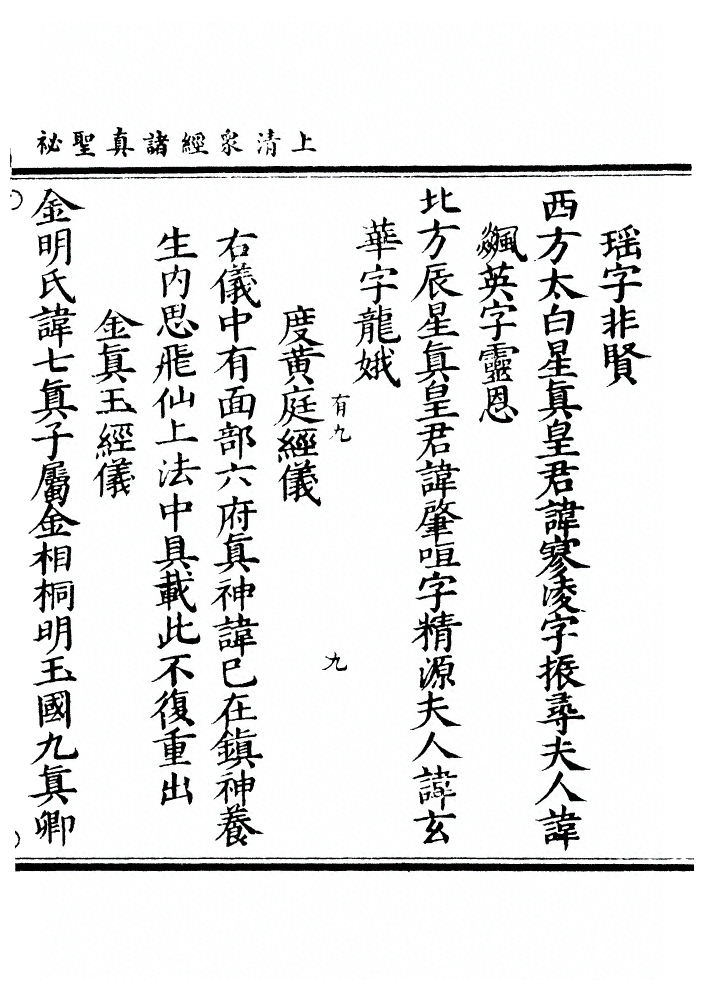 上清衆經諸真聖祕
瑶字非賢
西方太白星真皇君諱寥凌字振尋夫人諱
飈英字靈恩
北方辰星真皇君諱肇咺字精源夫人諱玄
華字龍娥
有九 九
度黄庭經儀
右儀中有面部六府真神諱已在鎮神養
生内思飛仙上法中具載此不復重出
金真玉經儀
金明氏諱七真子屬金相桐明玉國九真卿